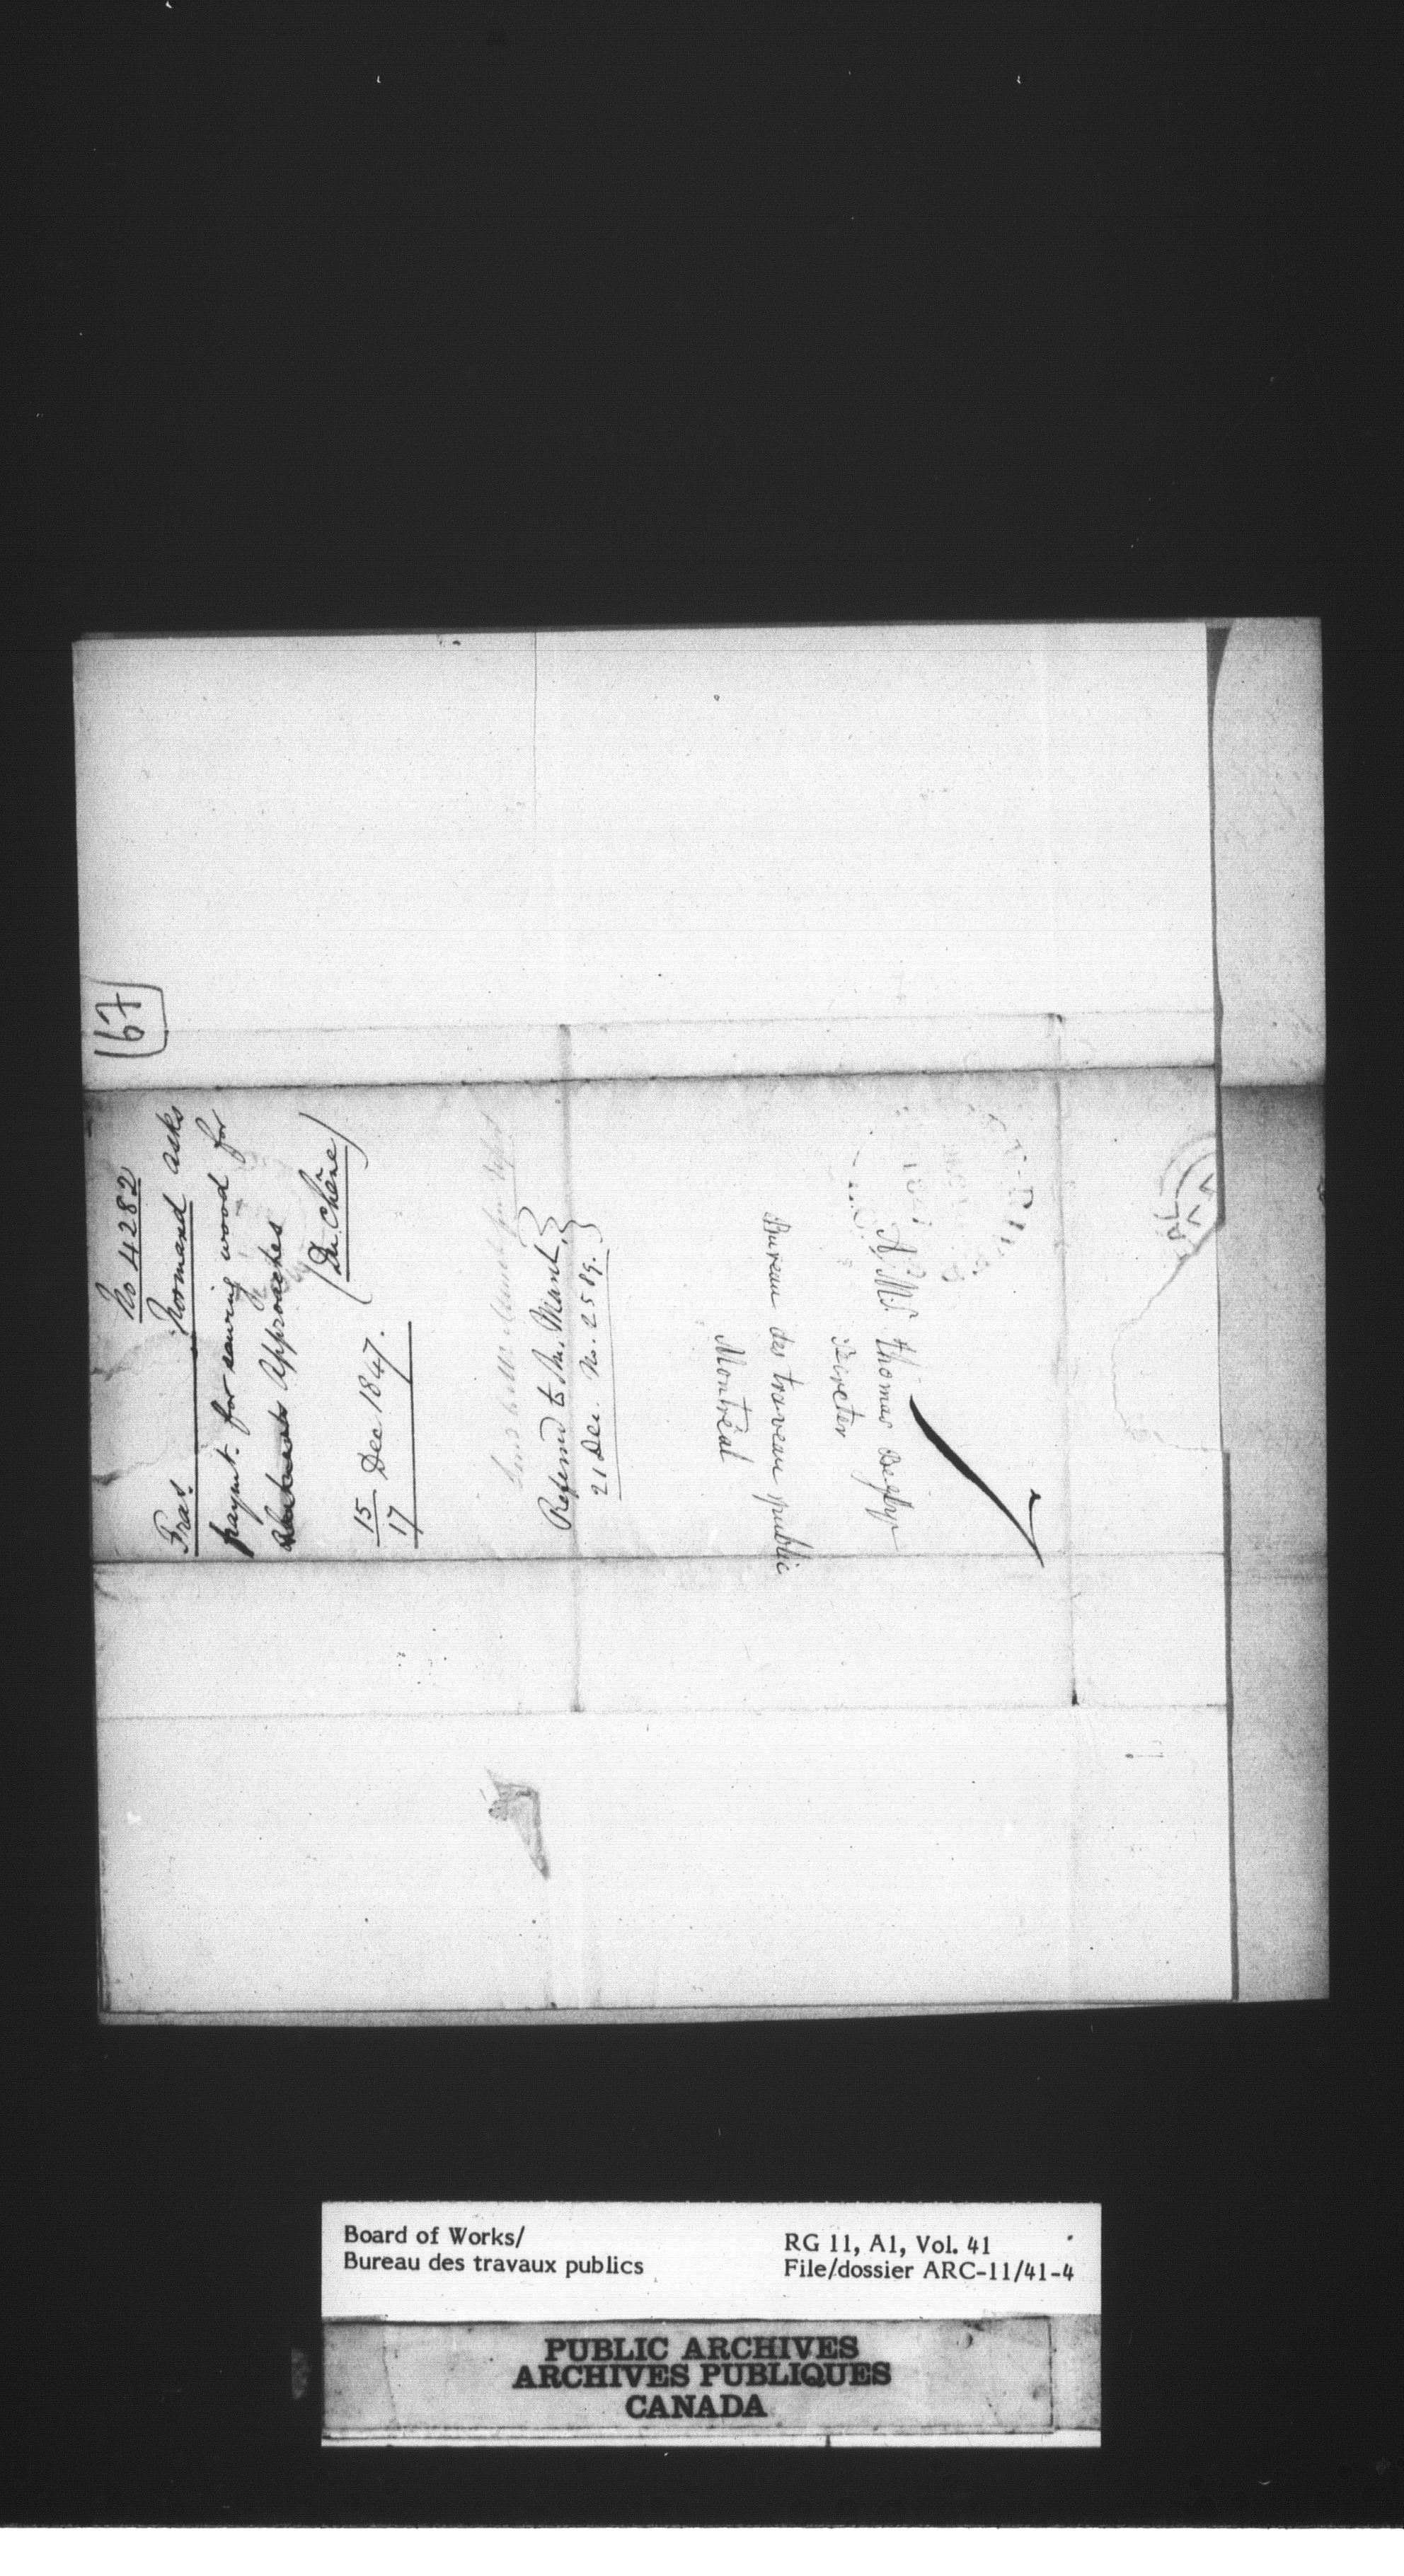 67
No 4282
Fras. Normand asks
paymt. for sawing wood for
Approaches
(Du Chêne)
15 Dec 1847.
17
Referred to Mr. Marst,
21 Dec. No. 2589.
A Mr. thomas Begly
Secreter
Bureau des traveau public
Montreal
Board of Works/
Bureau des travaux publics
RG 11, A1, Vol. 41
File/dossier ARC-11/41-4
PUBLIC ARCHIVES
ARCHIVES PUBLIQUES
CANADA